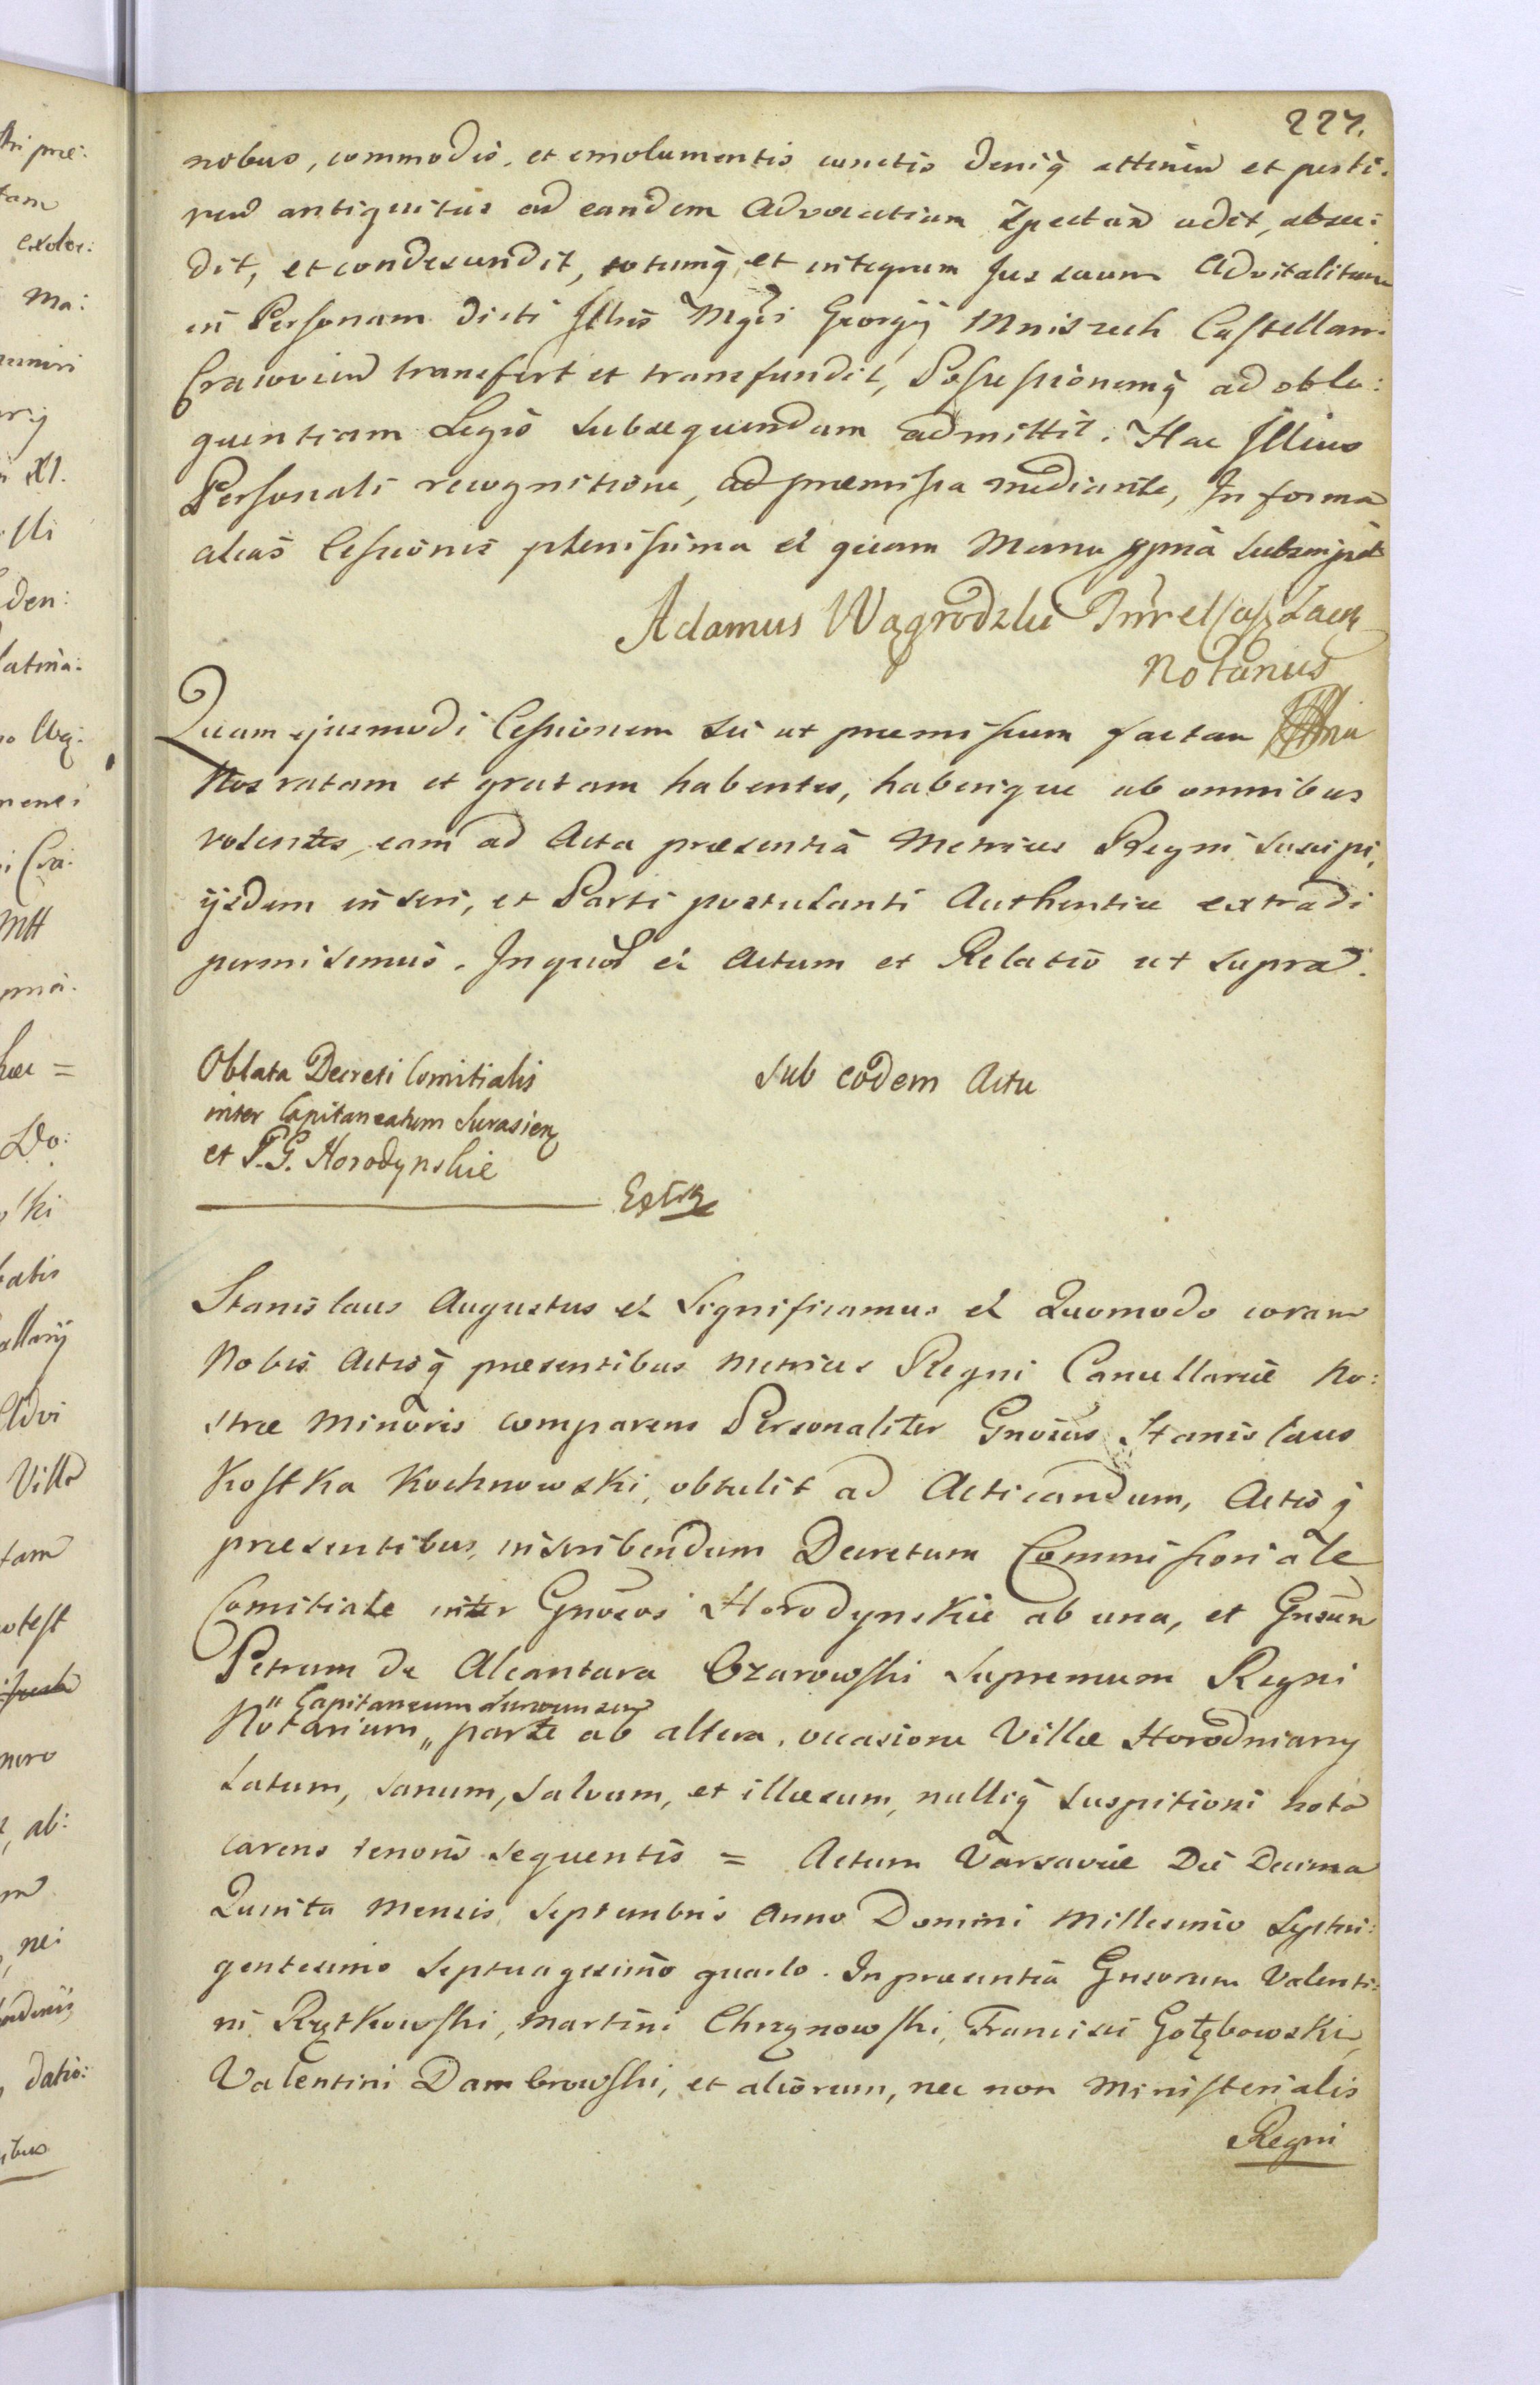 227.
nobus, commodis, et emolumentis cunctis deniq̃ attinen et perti:
nen antiquitus ad eandem Advocatiam spectan cedit, absce:
dit, et condescendit, totumq̃ et integrum Jus suum Advitalitium
in Personam dicti Illris Mgci Georgij Mniszech Castellani
Cracovien transfert et transfundit, Possessionemq̃ ad oble:
quentiam Legis subsequendam admittit. Hac Illius
Personali recognitione, ad præmissa mediante, In forma
alias Cessionis plenissima et quam Manu ppriâ subscripsit
Adamus Wągrodzki
Notarius
Quam ejusmodi Cessionem sic ut præmissum factam
Nos ratam et gratam habentes, haberique ab omnibus
volentes, eam ad Acta præsentia Metrices Regni suscipi,
ijsdem inseri, et Parti postulanti Authentice extradi
permisimus. In quor ei Actum et Relatio ut supra.
Oblata Decreti Comitialis
inter Capitaneatum Surasien
et P. G. Horodynskie
Extr
Sub eodem Actu
Stanislaus Augustus et Significamus et Quomodo coram
Nobis Actisq̃ præsentibus Metrices Regni Cancellariæ No:
stræ Minoris comparens Personaliter Gnosus Stanislaus
Kostka Kochnowski, obtulit ad Acticandum, Actisq̃
præsentibus inscribendum Decretum Commissoriale
Comitiale inter Gnosos Horodynskie ab una, et Gnsum
Petrum de Alcantara Ozarowski Supremum Regni
Capitaneum
Notarium „ parte ab altera, occasione Villæ Horodniany
Latum, sanum, salvum, et illæsum, nulliq̃ suspitioni nota
carens tenoris sequentis = Actum Varsaviæ Die Decima
Quinta Mensis Septembris Anno Domini Millesimo Septin:
gentesimo Septuagesimo quarto. In præsentia Gnsorum Valenti:
ni Rętkowski, Martini Chrzynowski, Francisci Gołębowski,
Valentini Dambrowski, et aliorum, nec non Ministerialis
Regni